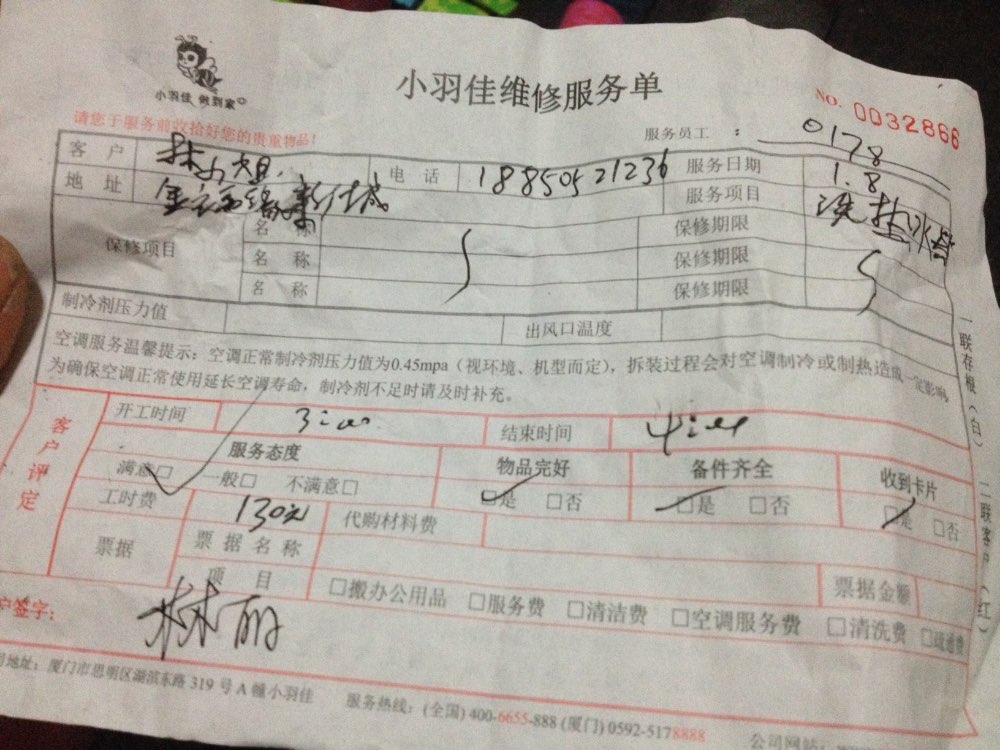 小羽佳 做到家
小羽佳维修服务单
NO. 0032866
请您于服务前收拾好您的贵重物品!
服务员工 : 0178
客 户 林小姐 电 话 18850521236 服务日期 1.8
地 址 服务项目 洗热水器
保修项目 名 称 保修期限
名 称 保修期限
名 称 保修期限
制冷剂压力值 出风口温度
空调服务温馨提示:空调正常制冷剂压力值为0.45mpa(视环境、机型而定),拆装过程会对空调制冷或制热造成一定影响
为确保空调正常使用延长空调寿命,制冷剂不足时请及时补充。
客户评定
开工时间 3:00 结束时间 4:00
服务态度 物品完好 备件齐全 收到卡片
满意□ 一般□ 不满意□ □是 □否 □是 □否 □是 □否
工时费 130元 代购材料费
票据 票据名称
项 目 □搬办公用品 □服务费 □清洁费 □空调服务费 □清洗费 □疏通费 票据金额
户签字: 林丽
司地址:厦门市思明区湖滨东路 319 号 A 幢小羽佳 服务热线:(全国) 400-6655-888 (厦门) 0592-5178888
公司网站
一联存根(白) 二联客户(红)